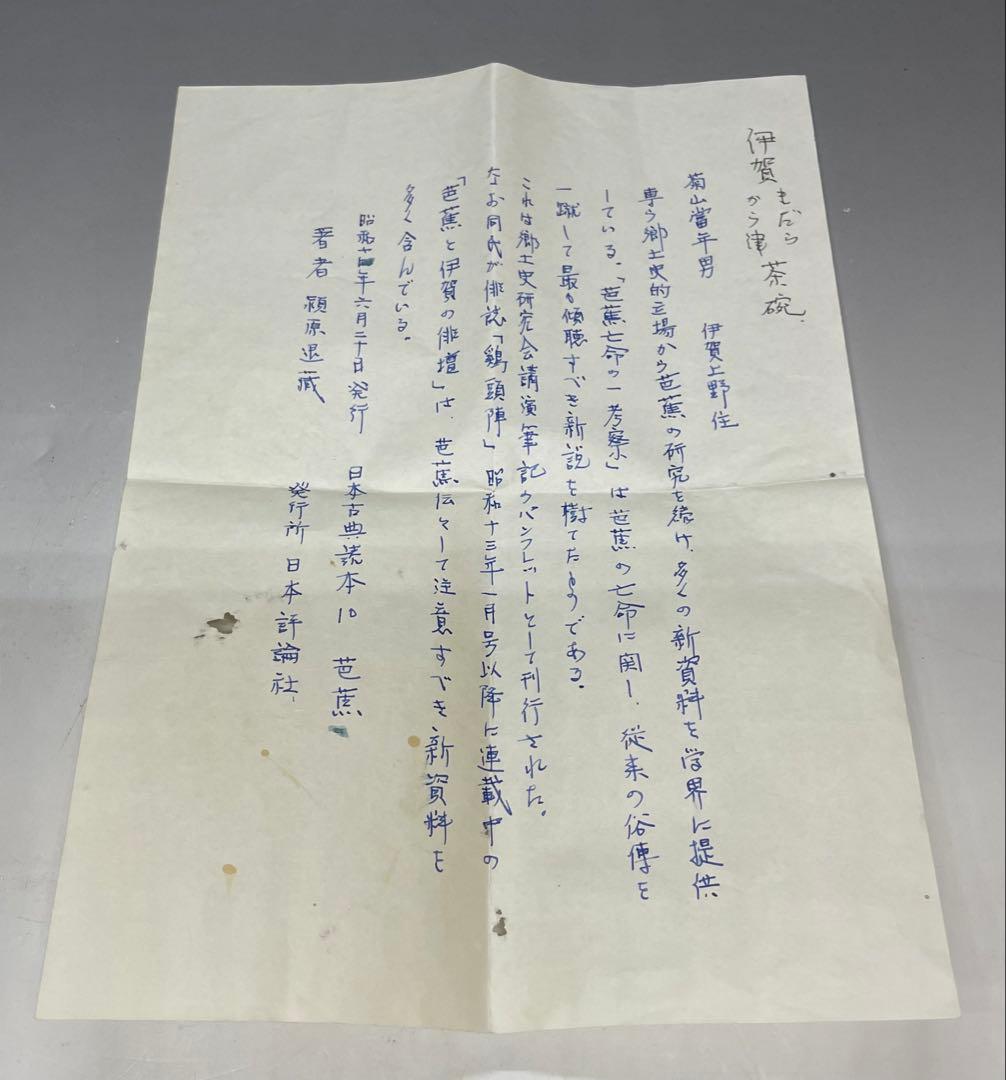 伊賀まだら
から津 茶碗.
菊山當年男 伊賀上野住
専ら郷土史的立場から芭蕉の研究を続け、多くの新資料を学界に提供
している。「芭蕉亡命の一考察」は芭蕉の亡命に関し、従来の俗傳を
一蹴して最も傾聴すべき新説を樹てたものである。
これは郷土史研究会講演筆記のパンフレットとして刊行された。
なお同氏が俳誌「鶏頭陣」昭和十三年一月号以降に連載中の
「芭蕉と伊賀の俳壇」は、芭蕉伝として注意すべき新資料を
多く含んでいる。
昭和十四年六月二十日発行 日本古典読本10 芭蕉
著者 潁原退蔵
発行所 日本評論社